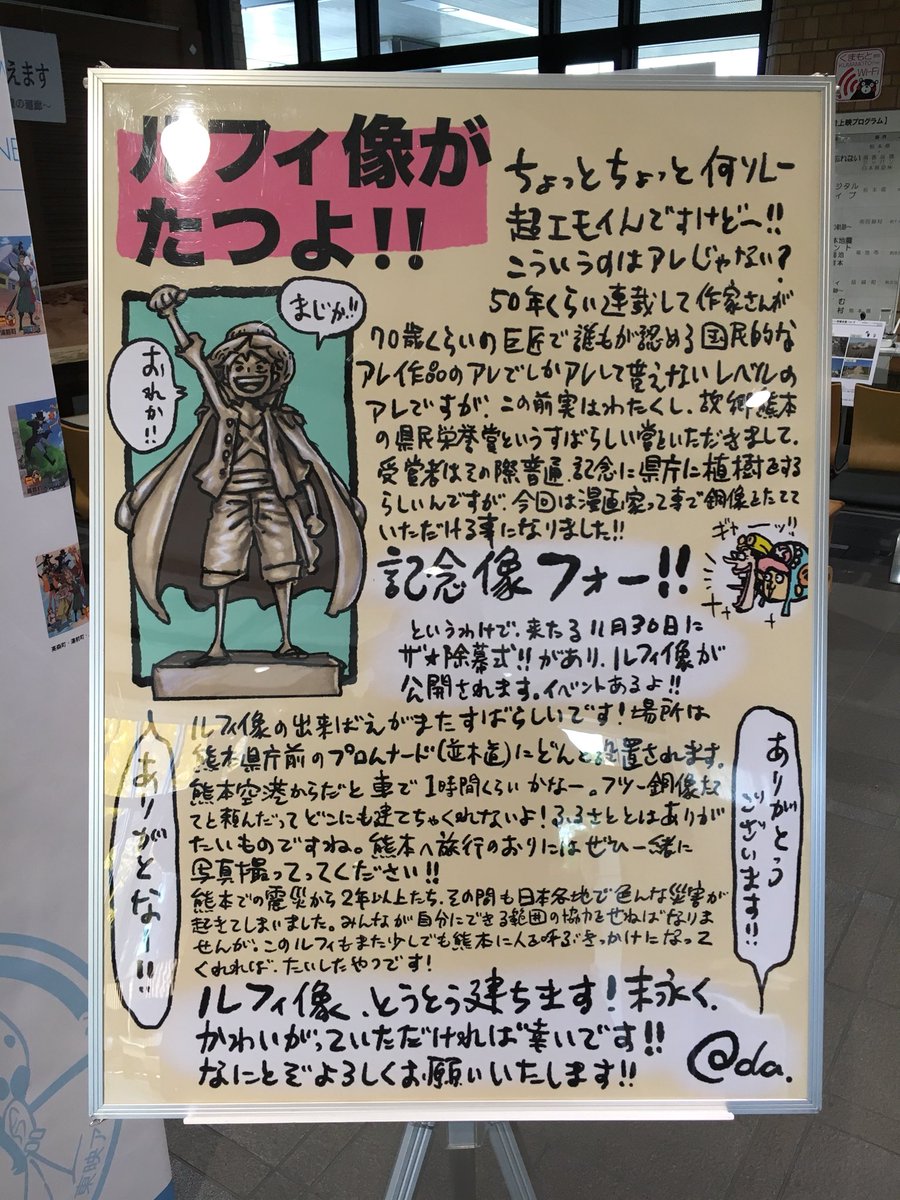 ルフィ像が
たつよ!!
ちょっとちょっと何ソレー
超エモイんですけど〜!!
こういうのはアレじゃない?
50年くらい連載して作家さんが
70歳くらいの巨匠で誰もが認める国民的な
アレ作品のアレでしかアレして貰えないレベルの
アレですが、この前実はわたくし、故郷熊本
の県民栄誉賞というすばらしい賞をいただきまして、
受賞者はその際普通、記念に県庁に植樹をする
らしいんですが、今回は漫画家って事で銅像をたてて
いただける事になりました!!
まじか!!
おれか!!
記念像フォー!!
ギャーッ!!
というわけで、来たる11月30日に
ザ★除幕式!!があり、ルフィ像が
公開されます。イベントあるよ!!
ルフィ像の出来ばえがまたすばらしいです!場所は
熊本県庁前のプロムナード(並木道)にどんと設置されます。
熊本空港からだと車で1時間くらいかなー。フツー銅像たて
てと頼んだってどこにも建てちゃくれないよ!ふるさととはありが
たいものですね。熊本へ旅行のおりにはぜひ一緒に
写真撮ってってください!!
熊本での震災から2年以上たち、その間も日本各地で色んな災害が
起きてしまいました。みんなが自分にできる範囲の協力をせねばなりま
せんが、このルフィもまた少しでも熊本に人を呼ぶきっかけになって
くれれば、たいしたやつです!
ありがとなー!!
ありがとう
ございます!!
ルフィ像、とうとう建ちます!末永く、
かわいがっていただければ幸いです!!
なにとぞよろしくお願いいたします!!
@da.
くまもと
KUMAMOTO
Wi-Fi
えます
上映プログラム】